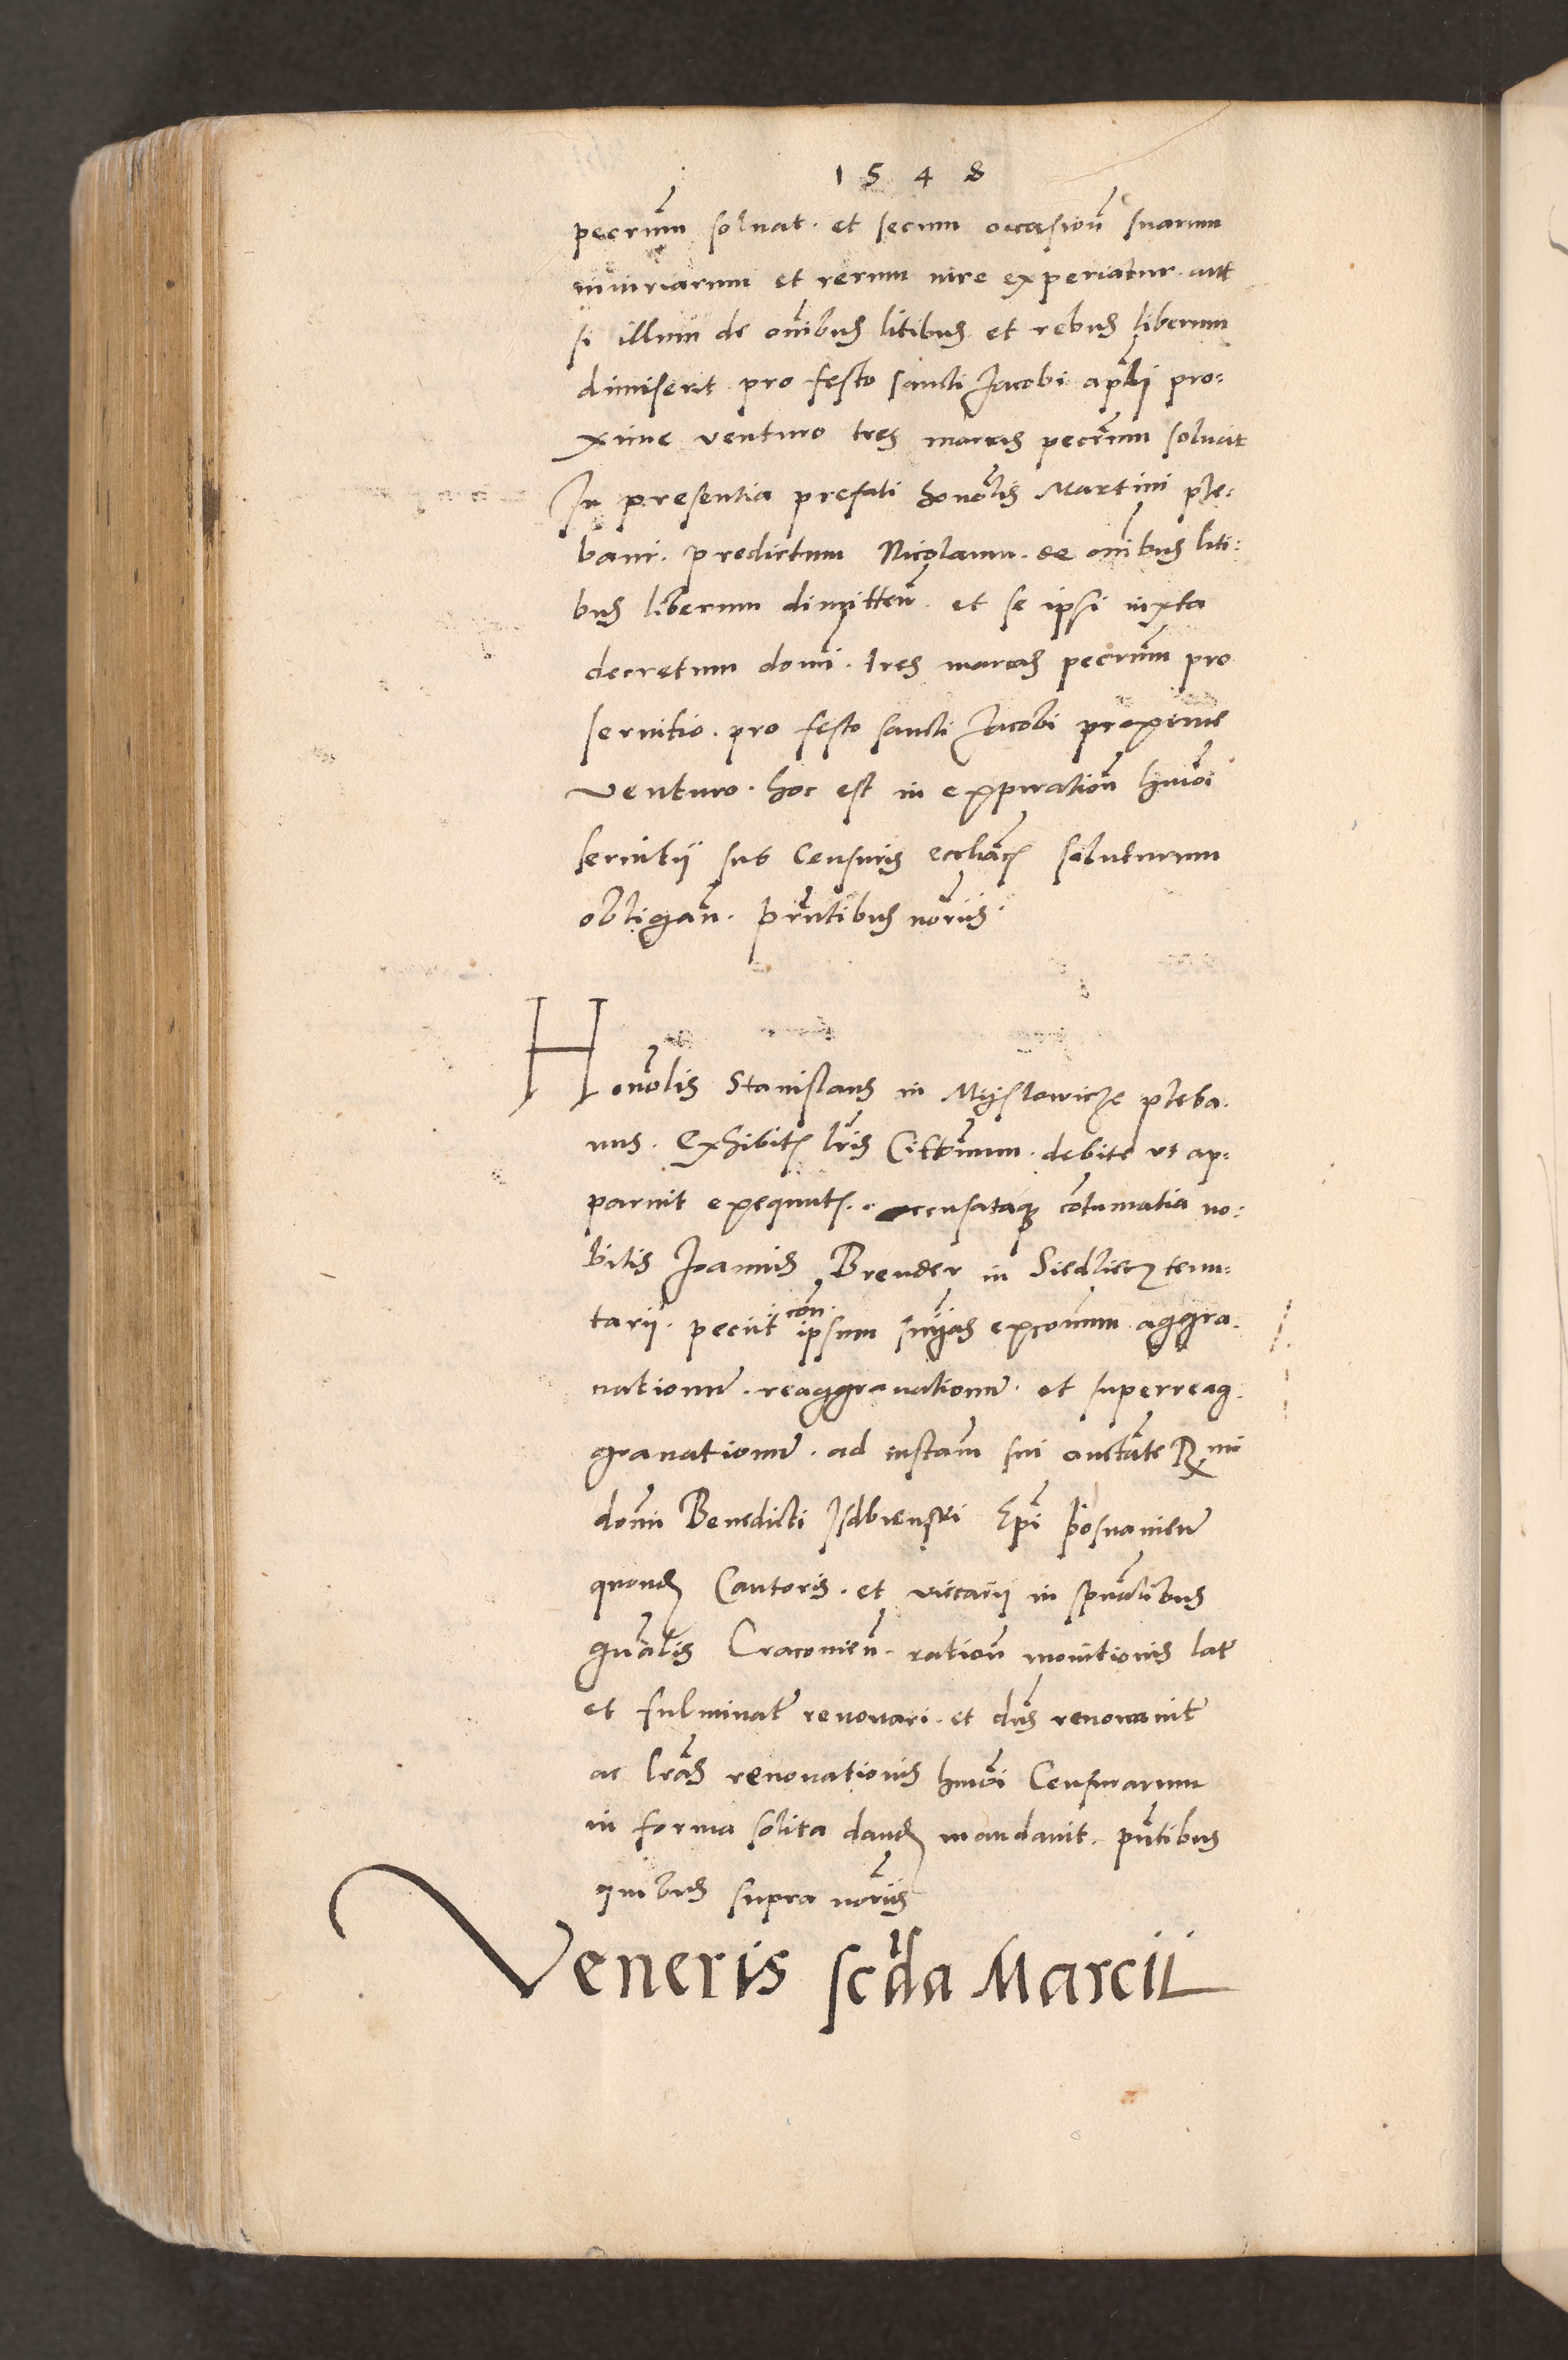 1548
pecunm̄ soluat. et secum occasion̄ suarum
iniuriarum et rerum iure experiatur. aut
si illum de om̄ibus litibus et rebus liberum
dimiserit pro festo sancti Jacobi apl̄i pro:
xime venturo tres marcas pecnm̄ soluat
In presentia prefati honol̄is Martini ple:
bani. predictum Nicolaum. de om̄ibus liti:
bus liberum dimitten̄. et se ipsi iuxta
decretum domi. tres marcas pecunm̄ pro
seruitio. pro festo sancti Jacobi proxime
venturo. hoc est in expiration̄ hmōi
seruitij sub Censuris eccl̄iac̄ soluturum
obligan̄. pn̄tibus nōrijs.
Honol̄is Stanislaus in Myslowicze pleba.
nus. Exhibit̄ lr̄is Cittr̄inum. debite vt ap:
paruit exequut̄. accusataq̄ cōtumatia no:
bilis Joannis Brender in Siedliecz tenu:
tarij. peciit con̄. ipsum sn̄ias excōmum aggra.
nationum̄. reaggrauationum̄. et superreag.
grauationum̄. ad instan̄ sui auctāte Rmi
domi Benedicti Isdbienski Epi Posnanien̄
quond̄ Cantoris. et vicarij in spūalibus
gn̄alis Cracouien̄. ration̄ monitionis lat̄
et fulminat̄ renouari. et dn̄s renouauit
ac lrās renouationis hmōi Censurarum
in forma solita dand̄ mandauit. pn̄tibus
quibus supra nōrijs
Veneris scd̄a Marcii